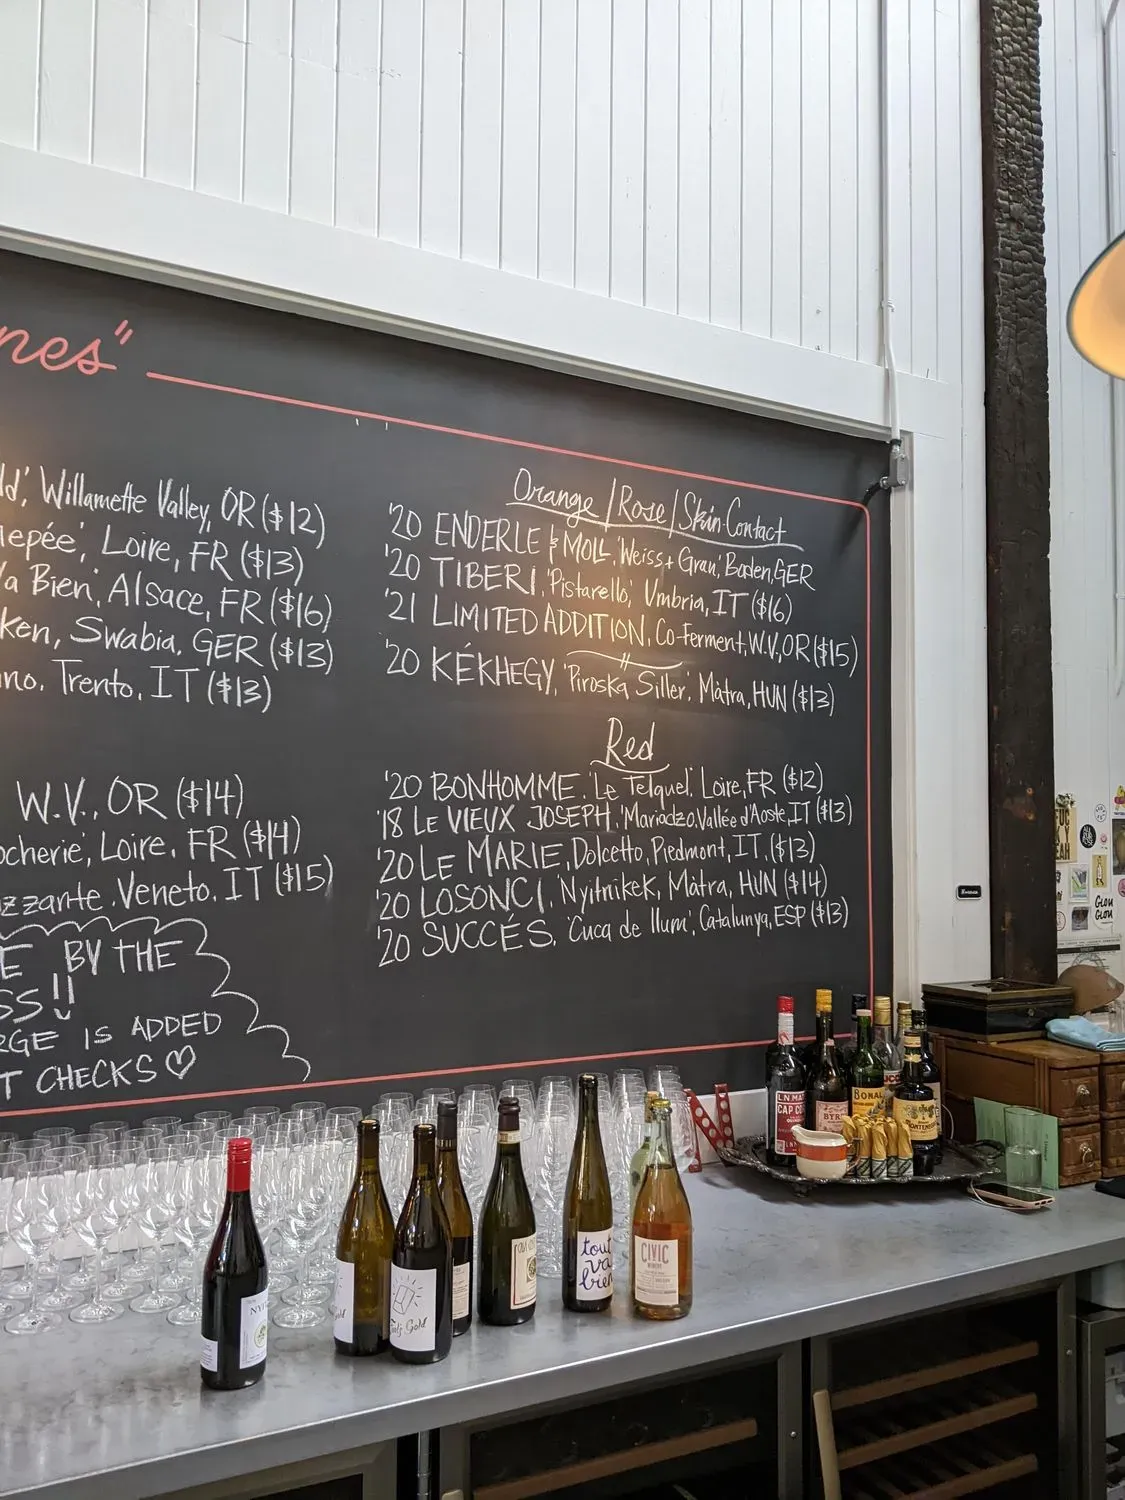 nes"
Willamette Valley, OR ($12)
Loire, FR ($13)
Va Bien', Alsace, FR ($16)
Swabia, GER ($13)
Trento, IT ($13)
W.V., OR ($14)
Loire, FR ($14)
Veneto, IT ($15)
BY THE
IS ADDED
CHECKS
Orange / Rose / Skin-Contact
'20 ENDERLE & MOLL, 'Weiss + Grau', Baden, GER
'20 TIBERI, 'Pistarello', Umbria, IT ($16)
'21 LIMITED ADDITION, Co-Ferment, W.V., OR ($15)
'20 KÉKHEGY, 'Piroska Siller', Màtra, HUN ($13)
Red
'20 BONHOMME, 'Le Telquel', Loire, FR ($12)
'18 LE VIEUX JOSEPH, 'Mariadzo, Vallée d'Aoste, IT ($13)
'20 LE MARIE, Dolcetto, Piedmont, IT, ($13)
'20 LOSONCI, Nyitrikek, Màtra, HUN ($14)
'20 SUCCÉS, 'Cuca de llum', Catalunya, ESP ($13)
Gold
tout
va
bien
CIVIC
WINERY
CAP CO
BYRR
BONAL
MONTENEGRO
Giou
Giou